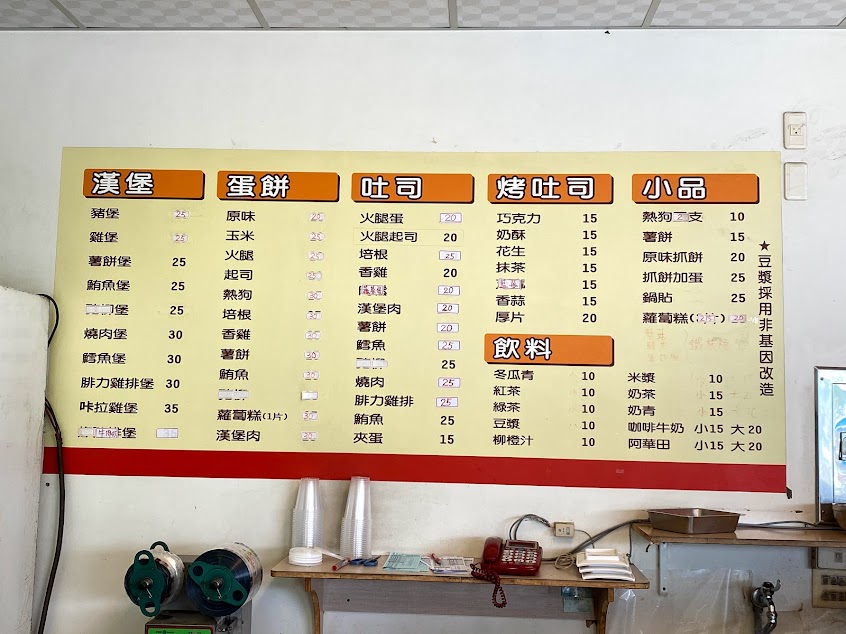 漢堡
豬堡 25
雞堡 25
薯餅堡 25
鮪魚堡 25
25
燒肉堡 30
鱈魚堡 30
腓力雞排堡 30
咔拉雞堡 35
蛋餅
原味 20
玉米
火腿
起司
熱狗
培根
香雞
薯餅
鮪魚
蘿蔔糕(1片)
漢堡肉
吐司
火腿蛋 20
火腿起司 20
培根 25
香雞 20
20
漢堡肉 20
薯餅 20
鱈魚 25
25
燒肉 25
腓力雞排 25
鮪魚 25
夾蛋 15
烤吐司
巧克力 15
奶酥 15
花生 15
抹茶 15
15
香蒜 15
厚片 20
飲料
冬瓜青 10
紅茶 10
綠茶 10
豆漿 10
柳橙汁 10
小品
熱狗2支 10
薯餅 15
原味抓餅 20
抓餅加蛋 25
鍋貼 25
蘿蔔糕(2片) 20
米漿 10
奶茶 15
奶青 15
咖啡牛奶 小15 大20
阿華田 小15 大20
★豆漿採用非基因改造